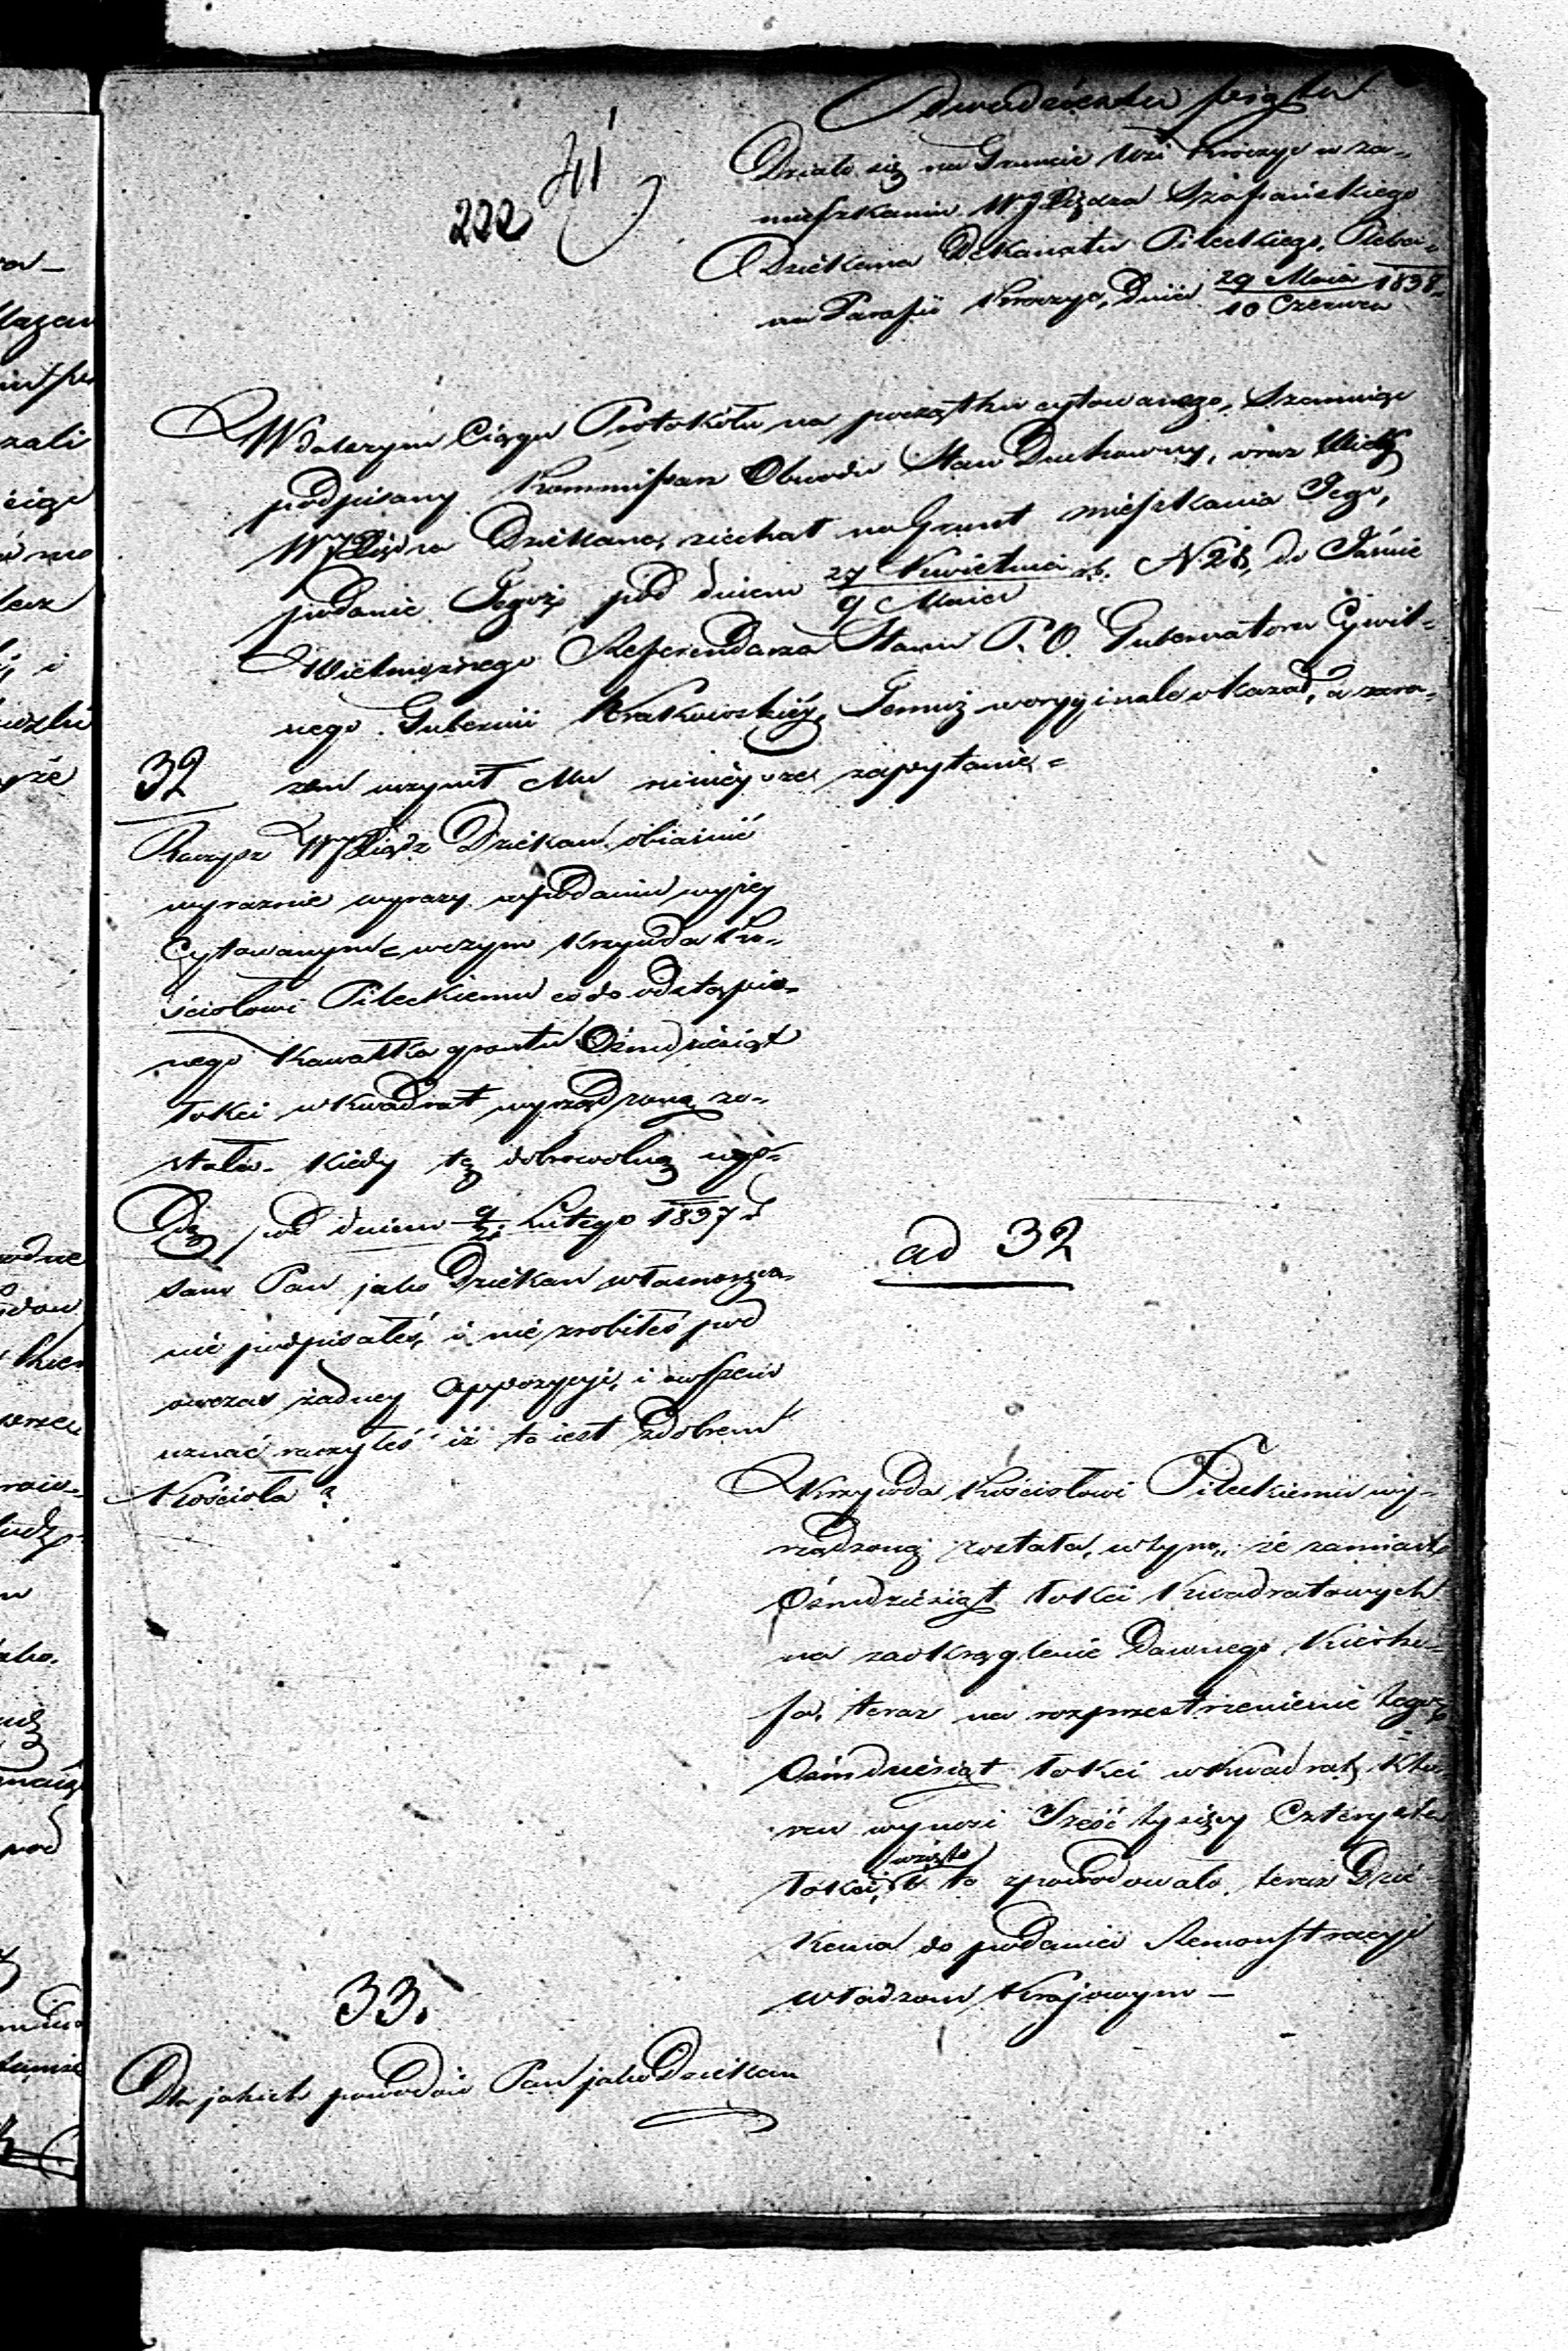 Dwudziesta piąta
222
Działo się na Gruncie Wsi Kroczyc w za-
mieszkaniu WJXiędza Szafrańskiego
Dziekana Dekanatu Pileckiego, Pleba-
na Parafii Kroczyc, Dnia 29 Maia / 10 Czerwca 1838
W dalszym Ciągu Protokółu na początku cytowanego,
podpisany Kommissarz Obwodu Stan Duchowny, oraz
WJXiędza Dziekana, ziechał na Grunt mieszkania Jego,
podanie Tegoż pod dniem 27 Kwietnia / 9 Maia rb. N. 28, do Jaśnie
Wielmożnego Referendarza Stanu P. O. Gubernatora Cywil-
nego Gubernii Krakowskiéy, Jemuż w oryginale okazał, a zara-
32
zem uczynił Mu ninieysze zapytanie =
Raczysz WJXiądz Dziekan obiaśnić
wyraznie wyrazy w podaniu wyżey
Cytowanym = w czym krzywda Ko-
ściołowi Pileckiemu co do odstąpio-
nego kawałka gruntu Ośmdziesiąt
łokci w kwadrat wyrządzoną zo-
stała - kiedy tę dobrowolną ugo-
dę pod dniem 9/21 Lutego 1837 r
sam Pan jako Dziekan własnoręcz-
nie podpisałeś, i nie zrobiłeś pod
owczas żadney oppozycyi, i owszem
uznać raczyłeś iż to iest z dobrem
Kościoła?
ad 32
Krzywda Kościołowi Pileckiemu wy-
rządzoną została, w tym, że zamiast
Ośmdziesiąt łokci Kwadratowych
na zaokrąglenie Dawnego Kierko-
fa, teraz na rozprzestrzenienie tegoż
Ośmdziesiąt łokci w kwadrat, któ-
ren wynosi Sześć tysięcy Czterysta
wzięto
łokci, to spowodowało teraz Dzie-
kana do podania Remonstracyi
władzom Krajowym -
33.
Dla jakich powodów Pan jako Dziekan